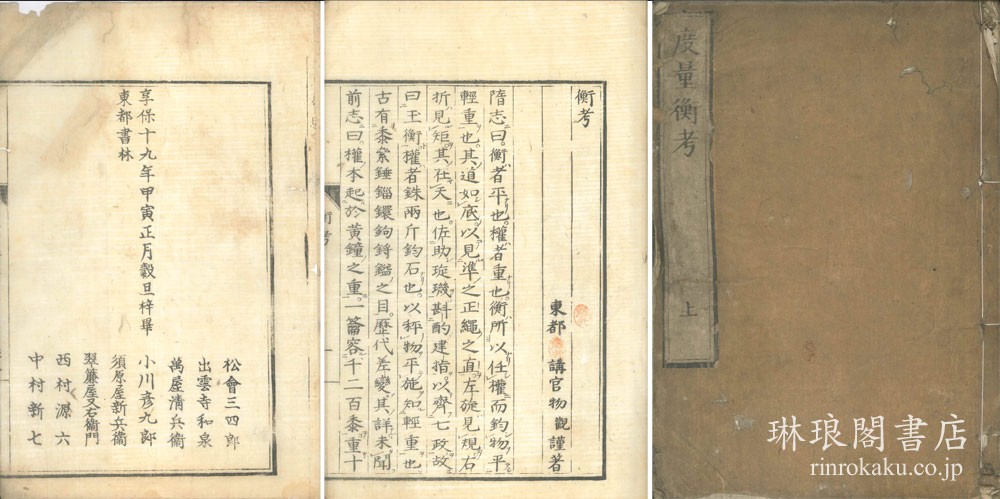 度量衡考 上
衡考
東都 講官物觀謹著
隋志曰衡者平也權者重也衡所以任權而鈞物平
輕重也其道如底以見準之正繩之直左旋見規右
折見矩其在天也佐助琁璣斟酌建指以齊七政故
曰王衡權者銖兩斤鈞石也以秤物平施知輕重也
古有黍絫錘錙鐶鉤鋝鎰之目歷代差變其詳未聞
前志曰權本起於黃鐘之重一籥容千二百黍重十
衡考
享保十九年甲寅正月穀旦梓畢
東都書林
松會三四郎
出雲寺和泉
萬屋清兵衞
小川彦九郎
須原屋新兵衞
翠簾屋又右衞門
西村源六
中村新七
琳琅閣書店
rinrokaku.co.jp